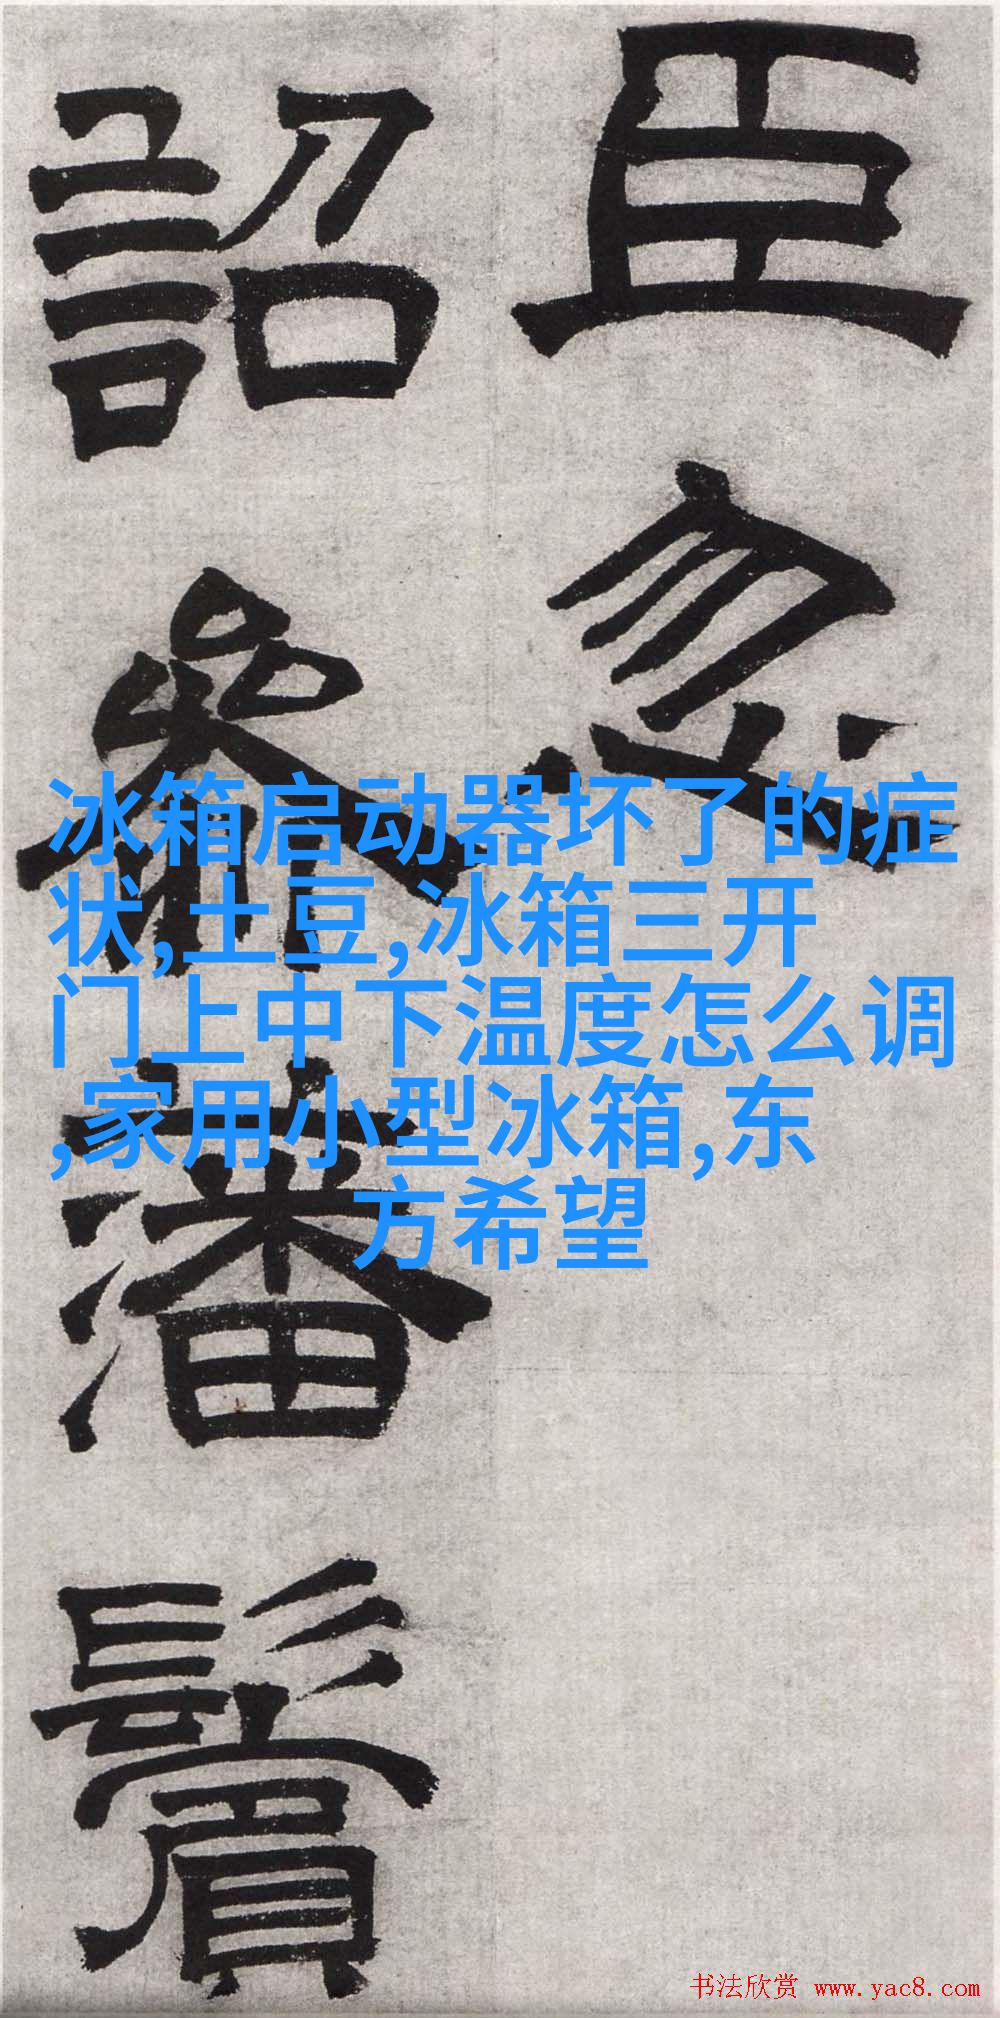 臣忽
詔參藩鬢
冰箱启动器坏了的症
状,土豆,冰箱三开
门上中下温度怎么调
,家用小型冰箱,东
方希望
书法欣赏 www.yac8.com